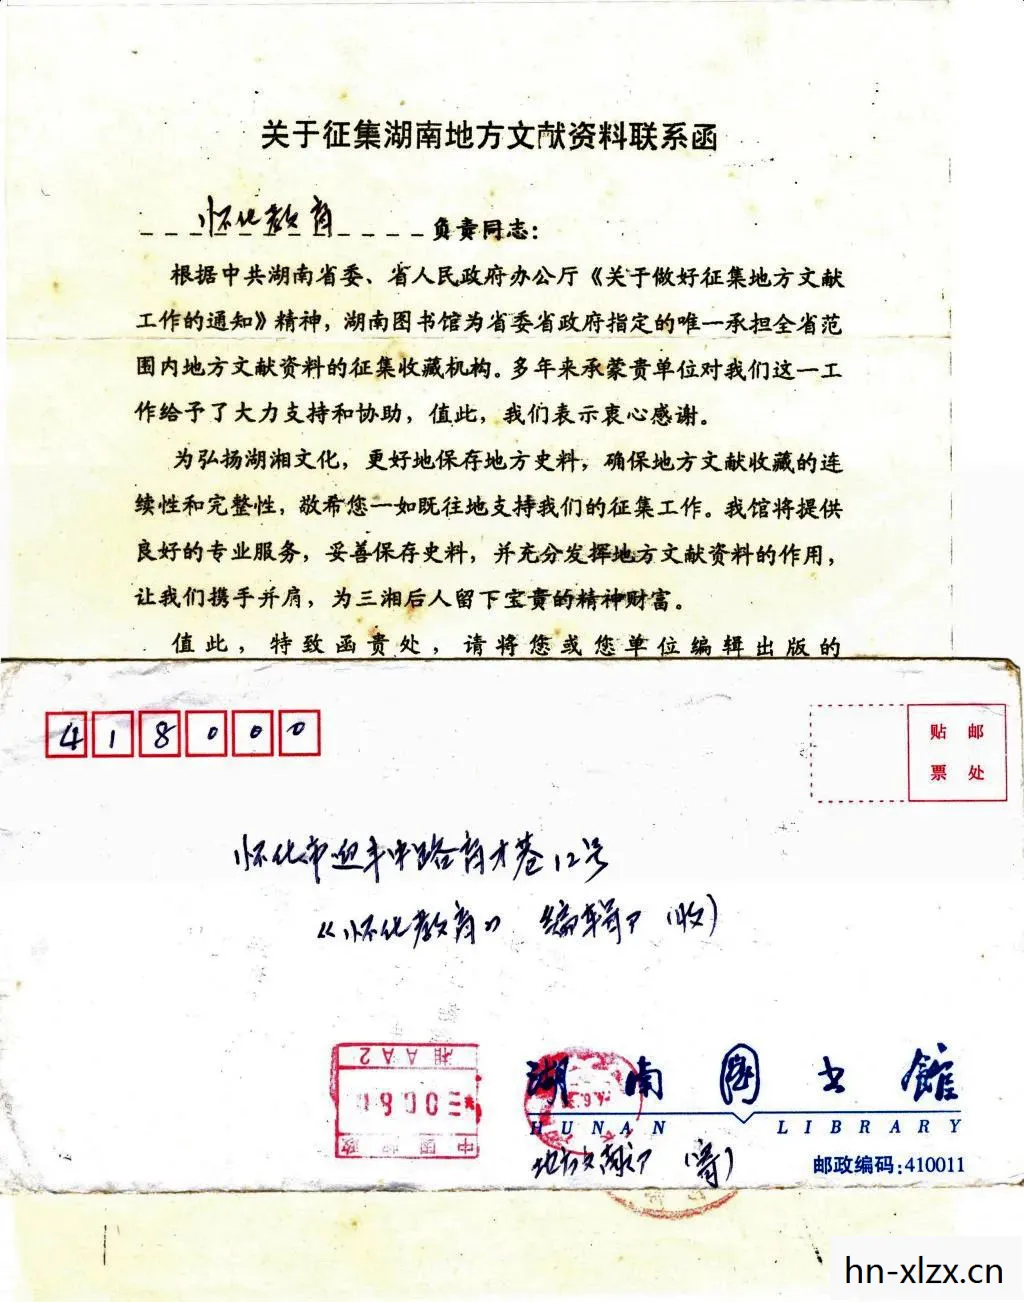 关于征集湖南地方文献资料联系函
怀化教育 负责同志：
根据中共湖南省委、省人民政府办公厅《关于做好征集地方文献
工作的通知》精神，湖南图书馆为省委省政府指定的唯一承担全省范
围内地方文献资料的征集收藏机构。多年来承蒙贵单位对我们这一工
作给予了大力支持和协助，值此，我们表示衷心感谢。
为弘扬湖湘文化，更好地保存地方史料，确保地方文献收藏的连
续性和完整性，敬希您一如既往地支持我们的征集工作。我馆将提供
良好的专业服务，妥善保存史料，并充分发挥地方文献资料的作用，
让我们携手并肩，为三湘后人留下宝贵的精神财富。
值此，特致函贵处，请将您或您单位编辑出版的
418000
贴邮
票处
怀化市迎丰中路育才巷12号
《怀化教育》编辑部（收）
湘AAA2
中国邮政
湖南图书馆
HUNAN LIBRARY
地方文献部（寄）
邮政编码:410011
hn-xlzx.cn